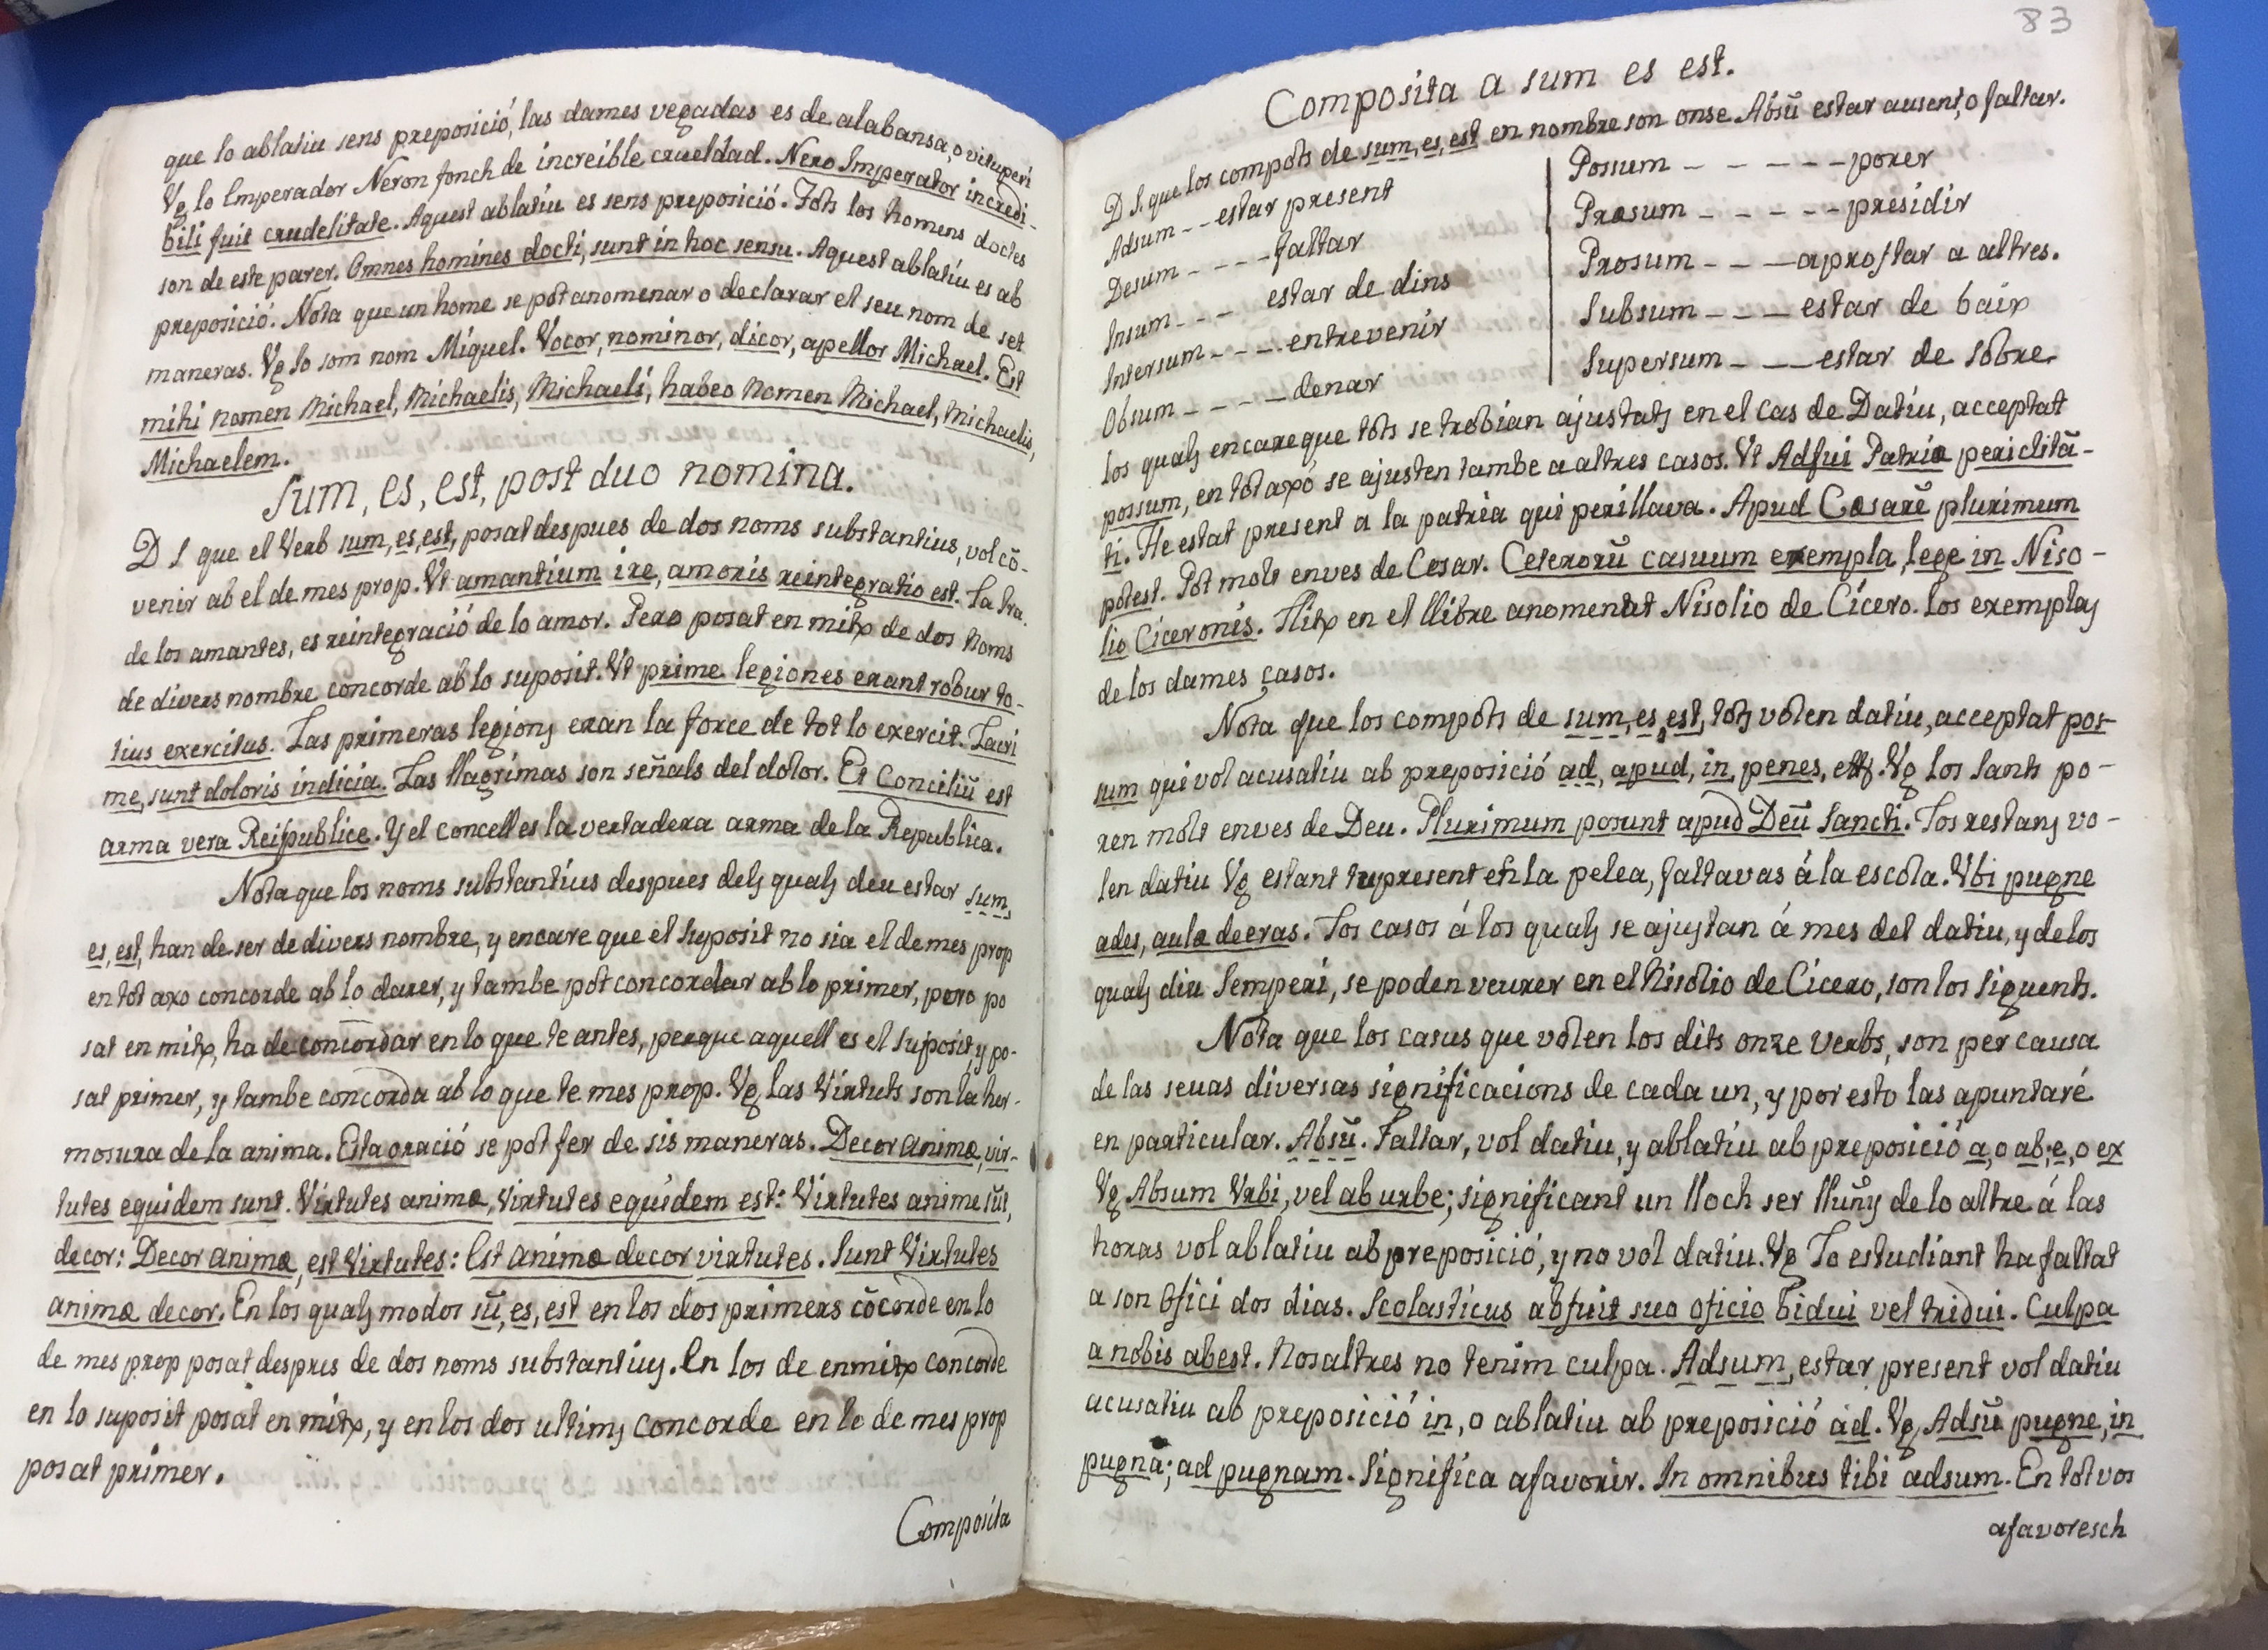 que lo ablatiu sens preposició, las dames vegadas es de alabansa, o vituperi
Vg lo Emperador Neron fonch de increible crueldad. Nero Imperator incredi-
bili fuit crudelitate. Aquest ablatiu es sens preposició. Tots los homens doctes
son de este parer. Omnes homines docti, sunt in hoc sensu. Aquest ablatiu es ab
preposició. Nota que un home se pot anomenar o declarar el seu nom de set
maneras. Vg lo som nom Miquel. Vocor, nominor, dicor, apellor Michael. Est
mihi nomen Michael, Michaelis, Michaeli, habeo nomen Michael, Michaelis,
Michaelem.
Sum, es, est, post duo nomina.
D S que el Verb sum, es, est, posat despues de dos noms substantius, vol cõ-
venir ab el de mes prop. Vt amantium ire, amoris reintegratio est. La ira
de los amantes, es reintegració de lo amor. Pero posat en mitx de dos noms
de divers nombre concorde ab lo suposit. Vt prime legiones erant robur to-
tius exercitus. Las primeras legions eran la force de tot lo exercit. Lacri
me, sunt doloris indicia. Las llagrimas son señals del dolor. Et Conciliũ est
arma vera Reipublice. Y el concell es la vertadera arma de la Republica.
Nota que los noms substantius despues dels quals deu estar sum,
es, est, han de ser de divers nombre, y encare que el suposit no sia el de mes prop
en tot axo concorde ab lo darer, y tambe pot concordar ab lo primer, pero po
sat en mitx, ha de concordar en lo que te antes, perque aquell es el suposit, y po-
sat primer, y tambe concorda ab lo que te mes prop. Vg, las Virtuts son la her-
mosura de la anima. Esta oració se pot fer de sis maneras. Decor animæ, vir-
tutes equidem sunt. Virtutes animæ, Virtutes equidem est: Virtutes anime sũt,
decor: Decor animæ, est Virtutes: Est animæ decor virtutes. Sunt Virtutes
animæ decor. En los quals modos sũ, es, est en los dos primers cõcorde en lo
de mes prop posat despres de dos noms substantius. En los de en mitx concorde
en lo suposit posat en mitx, y en los dos ultims concorde en lo de mes prop
posat primer.
Composita
83
Composita a sum es est.
D S. que los compots de sum, es, est en nombre son onse. Absũ estar ausent, o faltar.
Adsum - - estar present
Desum - - - - faltar
Insum - - - estar de dins
Intersum - - - - entrevenir
Obsum - - - - denar
Possum - - - - - - porer
Præsum - - - - - presidir
Prosum - - - aproftar a altres.
Subsum - - - estar de baix
Supersum - - - estar de sobre
los quals encare que tots se trobian ajustats en el cas de Datiu, acceptat
possum, en tot axo se ajusten tambe a altres casos. Vt Adfui Patriæ periclitã-
ti. He estat present a la patria qui perillava. Apud Cæsarẽ plurimum
potest. Pot molt enves de Cesar. Ceterorũ casuum exempla, lege in Niso-
lio Ciceronis. Llitx en el llibre anomenat Nisolio de Cicero. los exemplas
de los dames casos.
Nota que los compots de sum, es, est, tots volen datiu, acceptat pos-
sum qui vol acusatiu ab preposició ad, apud, in, penes, etts. Vg los Sants po-
ren molt enves de Deu. Plurimum posunt apud Deũ Sancti. Los restans vo-
len datiu Vg estant tu present en la pelea, faltavas á la escola. Vbi pugne
ades, aulæ deeras. Los casos á los quals se ajustan á mes del datiu, y de los
quals diu Semperi, se poden veurer en el Nisolio de Cicero, son los siguents.
Nota que los casus que volen los dits onze Verbs, son per causa
de las seuas diversas significacions de cada un, y por esto las apuntaré
en particular. Absũ. Faltar, vol datiu, y ablatiu ab preposició a, o ab, e, o ex
Vg Absum Vrbi, vel ab urbe; significant un lloch ser lluñy de lo altre á las
horas vol ablatiu ab preposició, y no vol datiu. Vg Lo estudiant ha faltat
a son Ofici dos dias. Scolasticus abfuit suo oficio bidui vel tridui. Culpa
a nobis abest. Nosaltres no tenim culpa. Adsum, estar present vol datiu
acusatiu ab preposició in, o ablatiu ab preposició ad. Vg, Adsũ pugne, in
pugna; ad pugnam. Significa afavorir. In omnibus tibi adsum. En tot vos
afavoresch